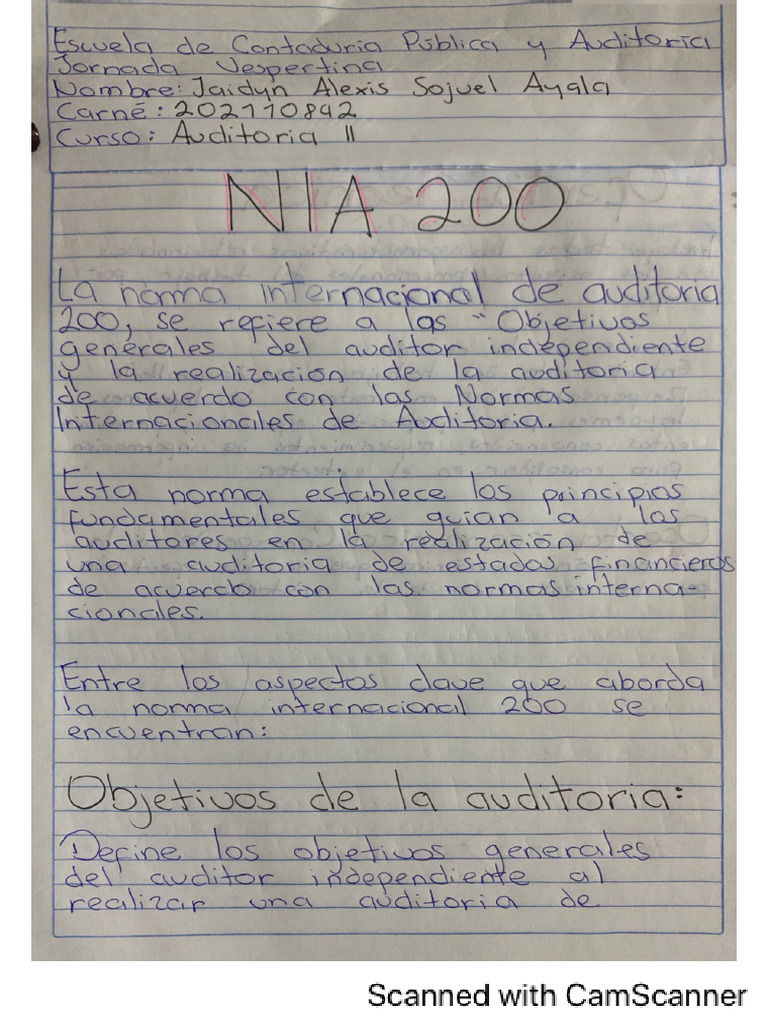 Escuela de Contaduria Pública y Auditoria
Jornada Vespertina
Nombre: Jaidyn Alexis Sojuel Ayala
Carné: 202110842
Curso: Auditoria II
NIA 200
La norma internacional de auditoria
200, se refiere a las "Objetivos
generales del auditor independiente
y la realización de la auditoria
de acuerdo con las Normas
Internacionales de Auditoria.
Esta norma establece los principios
fundamentales que guian a los
auditores en la realización de
una auditoria de estados financieros
de acuerdo con las normas interna-
cionales.
Entre los aspectos clave que aborda
la norma internacional 200 se
encuentran:
Objetivos de la auditoria:
Define los objetivos generales
del auditor independiente al
realizar una auditoria de
Scanned with CamScanner